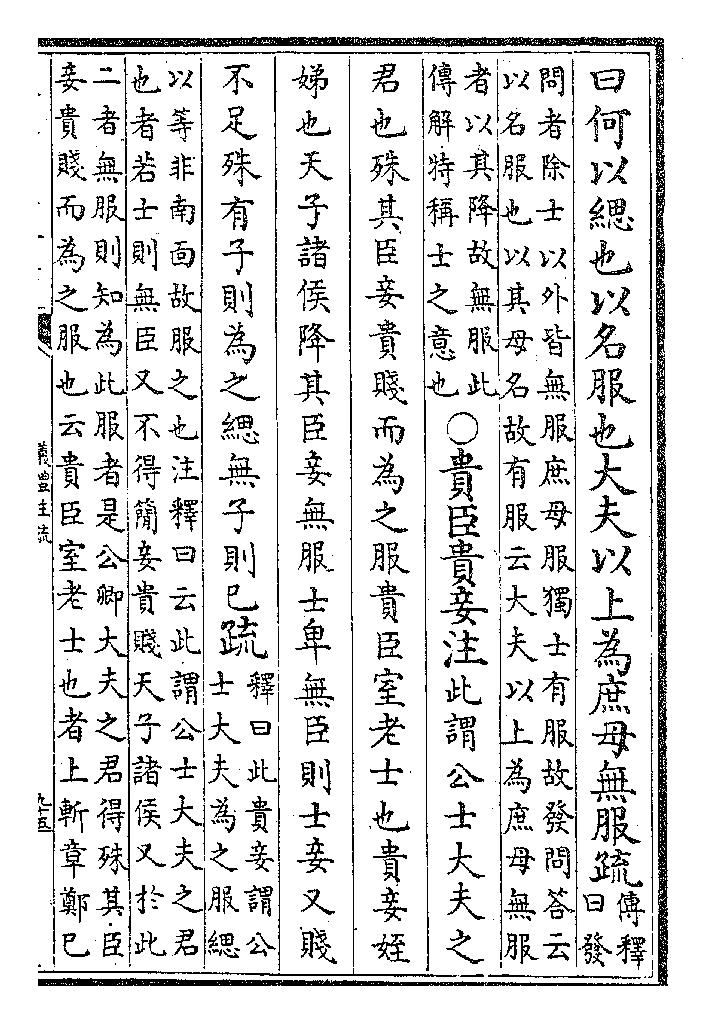 曰何以緦也以名服也大夫以上為庶母無服疏傳釋
曰發
問者除士以外皆無服庶母服獨士有服故發問答云
以名服也以其母名故有服云大夫以上為庶母無服
者以其降故無服此
傳解特稱士之意也
〇貴臣貴妾注此謂公士大夫之
君也殊其臣妾貴賤而為之服貴臣室老士也貴妾姪
娣也天子諸侯降其臣妾無服士卑無臣則士妾又賤
不足殊有子則為之緦無子則已疏
釋曰此貴妾謂公
士大夫為之服緦
以等非南面故服之也注釋曰云此謂公士大夫之君
也者若士則無臣又不得簡妾貴賤天子諸侯又於此
二者無服則知為此服者是公卿大夫之君得殊其臣
妾貴賤而為之服也云貴臣室老士也者上斬章鄭已
儀禮注疏
九十五